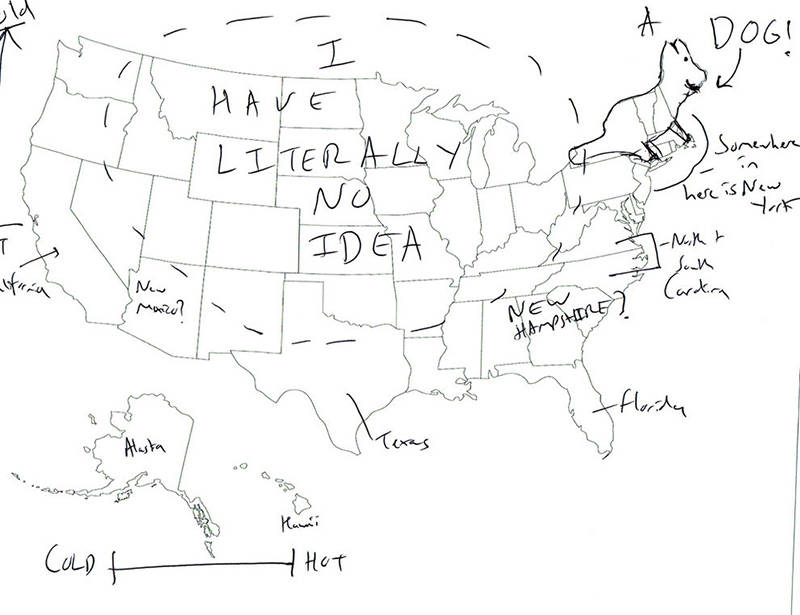 old
I
A
DOG!
HAVE
LITERALLY
Somewhere
in
here is New
York
NO
IDEA
North +
South
Carolina
T
New
Mexico?
NEW
HAMPSHIRE?
Florida
Texas
Alaska
Hawaii
COLD
HOT